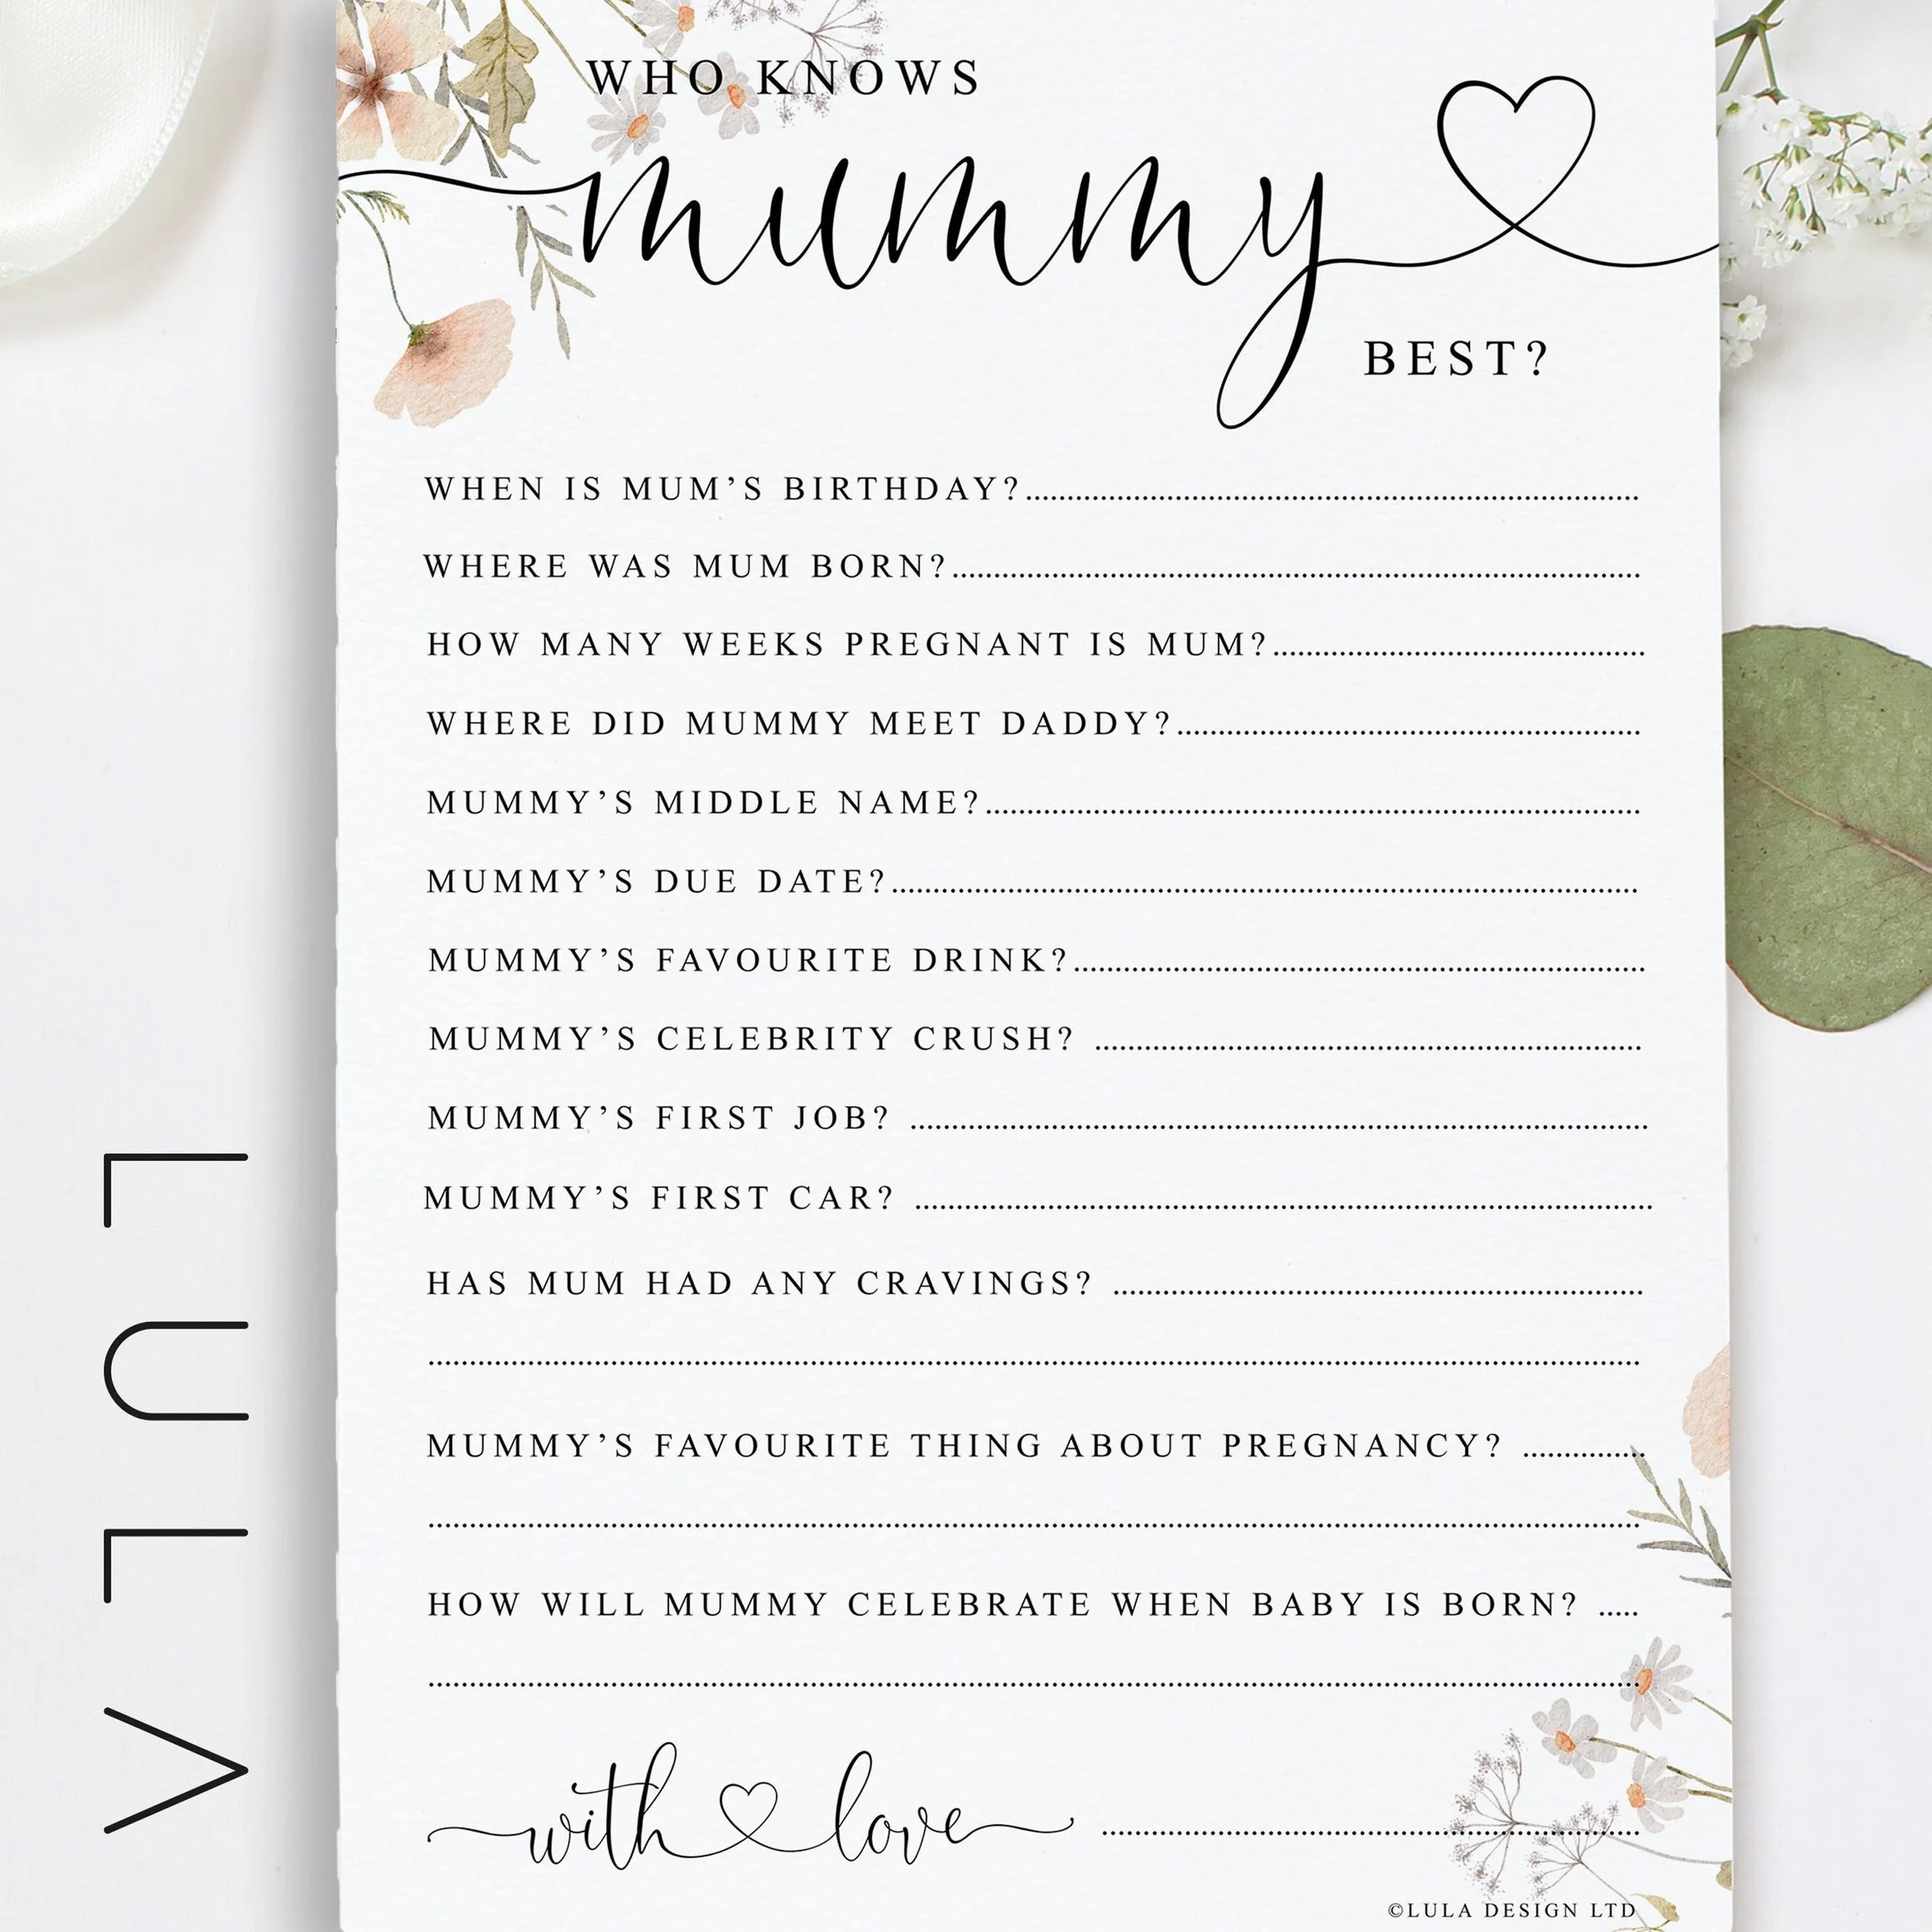 WHO KNOWS
mummy
BEST?
WHEN IS MUM'S BIRTHDAY?
WHERE WAS MUM BORN?
HOW MANY WEEKS PREGNANT IS MUM?
WHERE DID MUMMY MEET DADDY?
MUMMY'S MIDDLE NAME?
MUMMY'S DUE DATE?
MUMMY'S FAVOURITE DRINK?
MUMMY'S CELEBRITY CRUSH?
MUMMY'S FIRST JOB?
MUMMY'S FIRST CAR?
HAS MUM HAD ANY CRAVINGS?
MUMMY'S FAVOURITE THING ABOUT PREGNANCY?
HOW WILL MUMMY CELEBRATE WHEN BABY IS BORN?
with love
©LULA DESIGN LTD
LULA